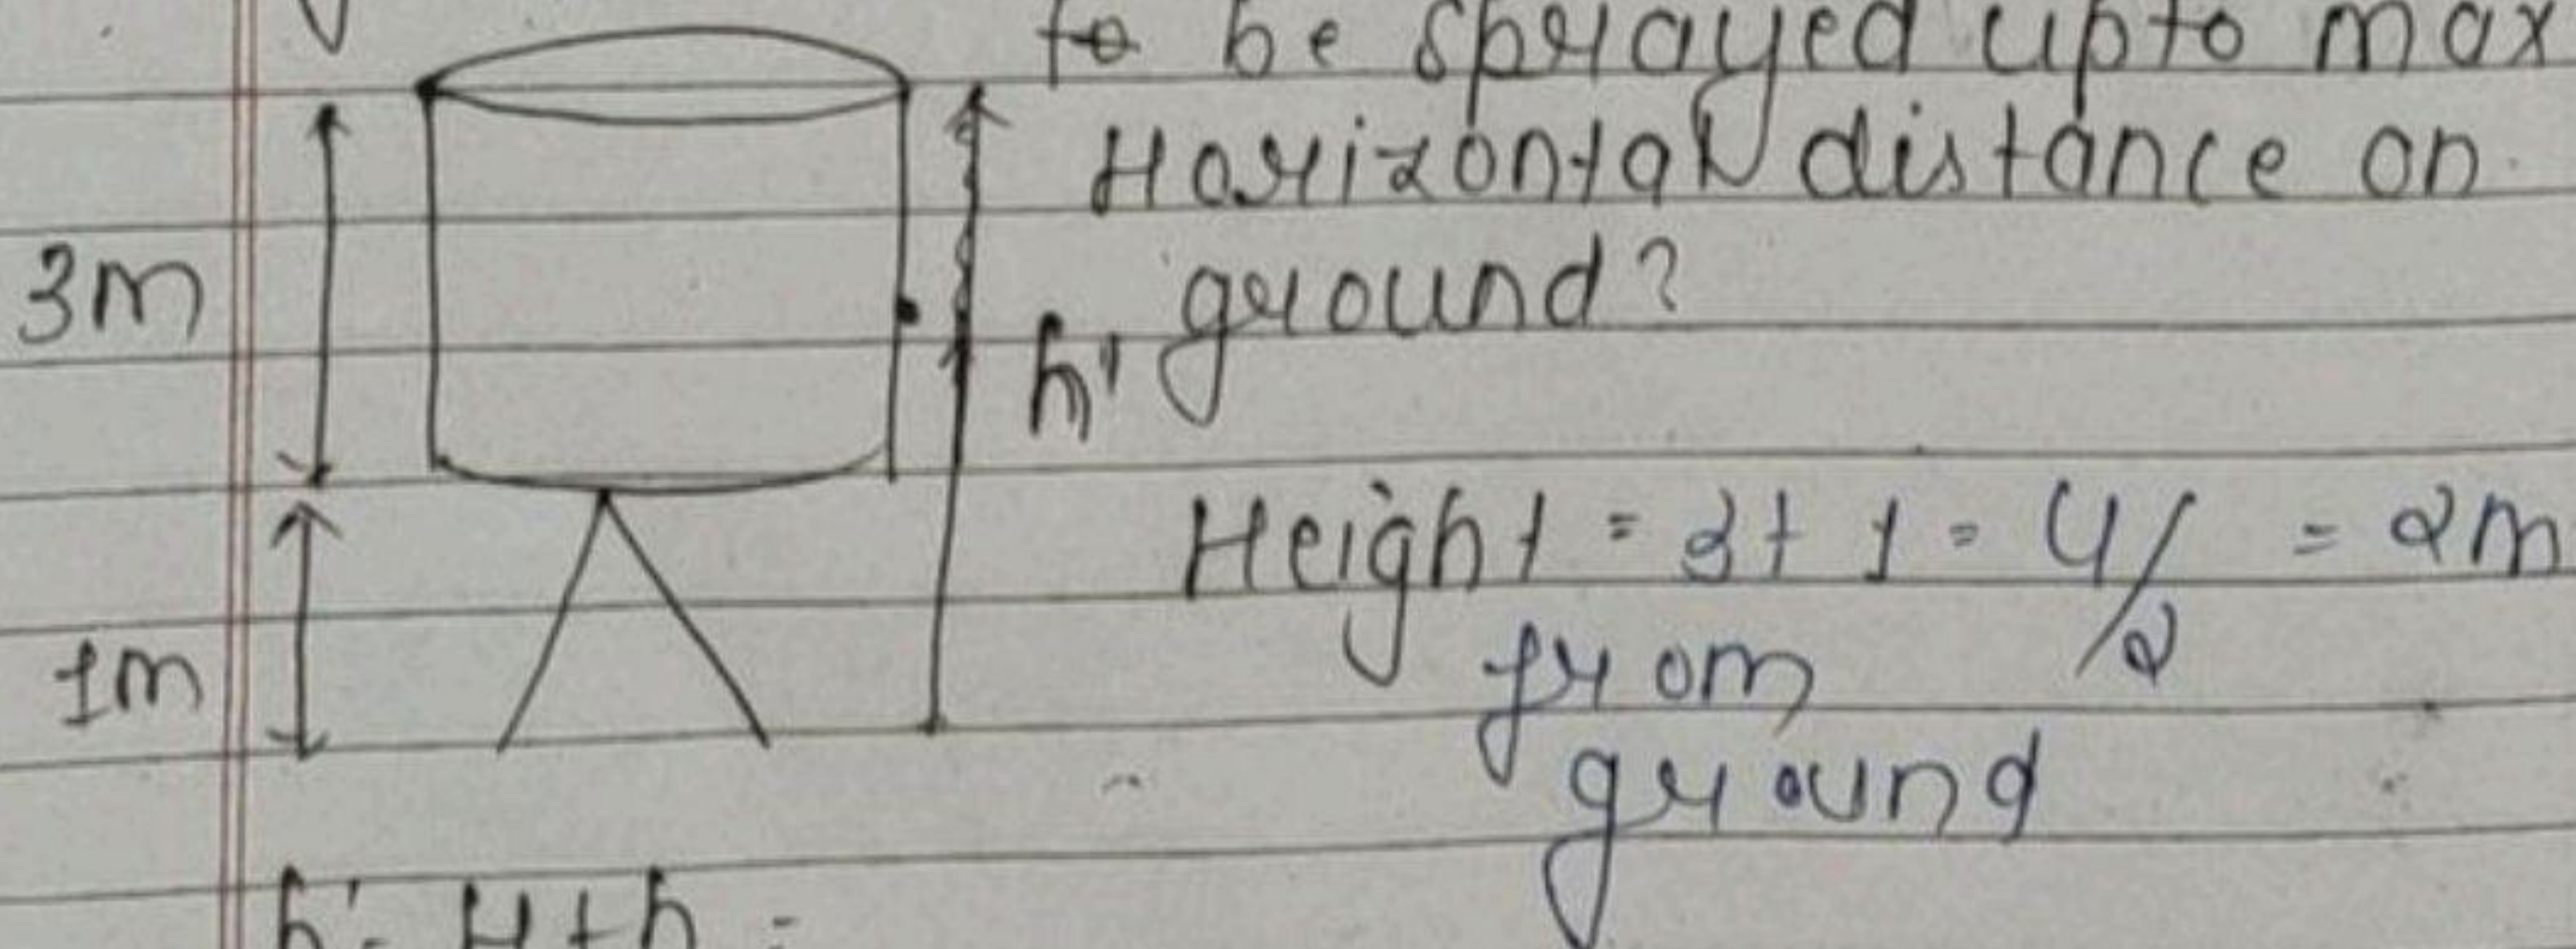 to be sprayed upto max
Horizontal distance on
ground?
3m
h'
Height = 3+1 = 4/2 = 2m
from
ground
1m
h' = H+h =